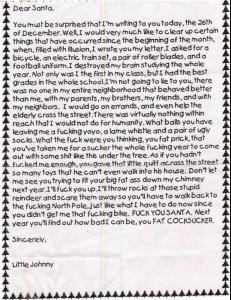 Dear Santa,
You must be surprised that I'm writing to you today, the 26th
of December. Well, I would very much like to clear up certain
things that have occurred since the beginning of the month,
when, filled with illusion, I wrote you my letter. I asked for a
bicycle, an electric train set, a pair of roller blades, and a
football uniform. I destroyed my brain studying the whole
year. Not only was I the first in my class, but I had the best
grades in the whole school. I'm not going to lie to you, there
was no one in my entire neighborhood that behaved better
than me, with my parents, my brothers, my friends, and with
my neighbors. I would go on errands, and even help the
elderly cross the street. There was virtually nothing within
reach that I would not do for humanity. What balls you have
leaving me a fucking yoyo, a lame whistle and a pair of ugly
socks. What the fuck were you thinking, you fat prick, that
you've taken me for a sucker the whole fucking year to come
out with some shit like this under the tree. As if you hadn't
fucked me enough, you gave that little queer across the street
so many toys that he can't even walk into his house. Don't let
me see you trying to fit your big fat ass down my chimney
next year. I'll fuck you up. I'll throw rocks at those stupid
reindeer and scare them away so you'll have to walk back to
the fucking North Pole, just like what I have to do now since
you didn't get me that fucking bike. FUCK YOU SANTA. Next
year you'll find out how bad I can be, you FAT COCKSUCKER.
Sincerely,
Little Johnny